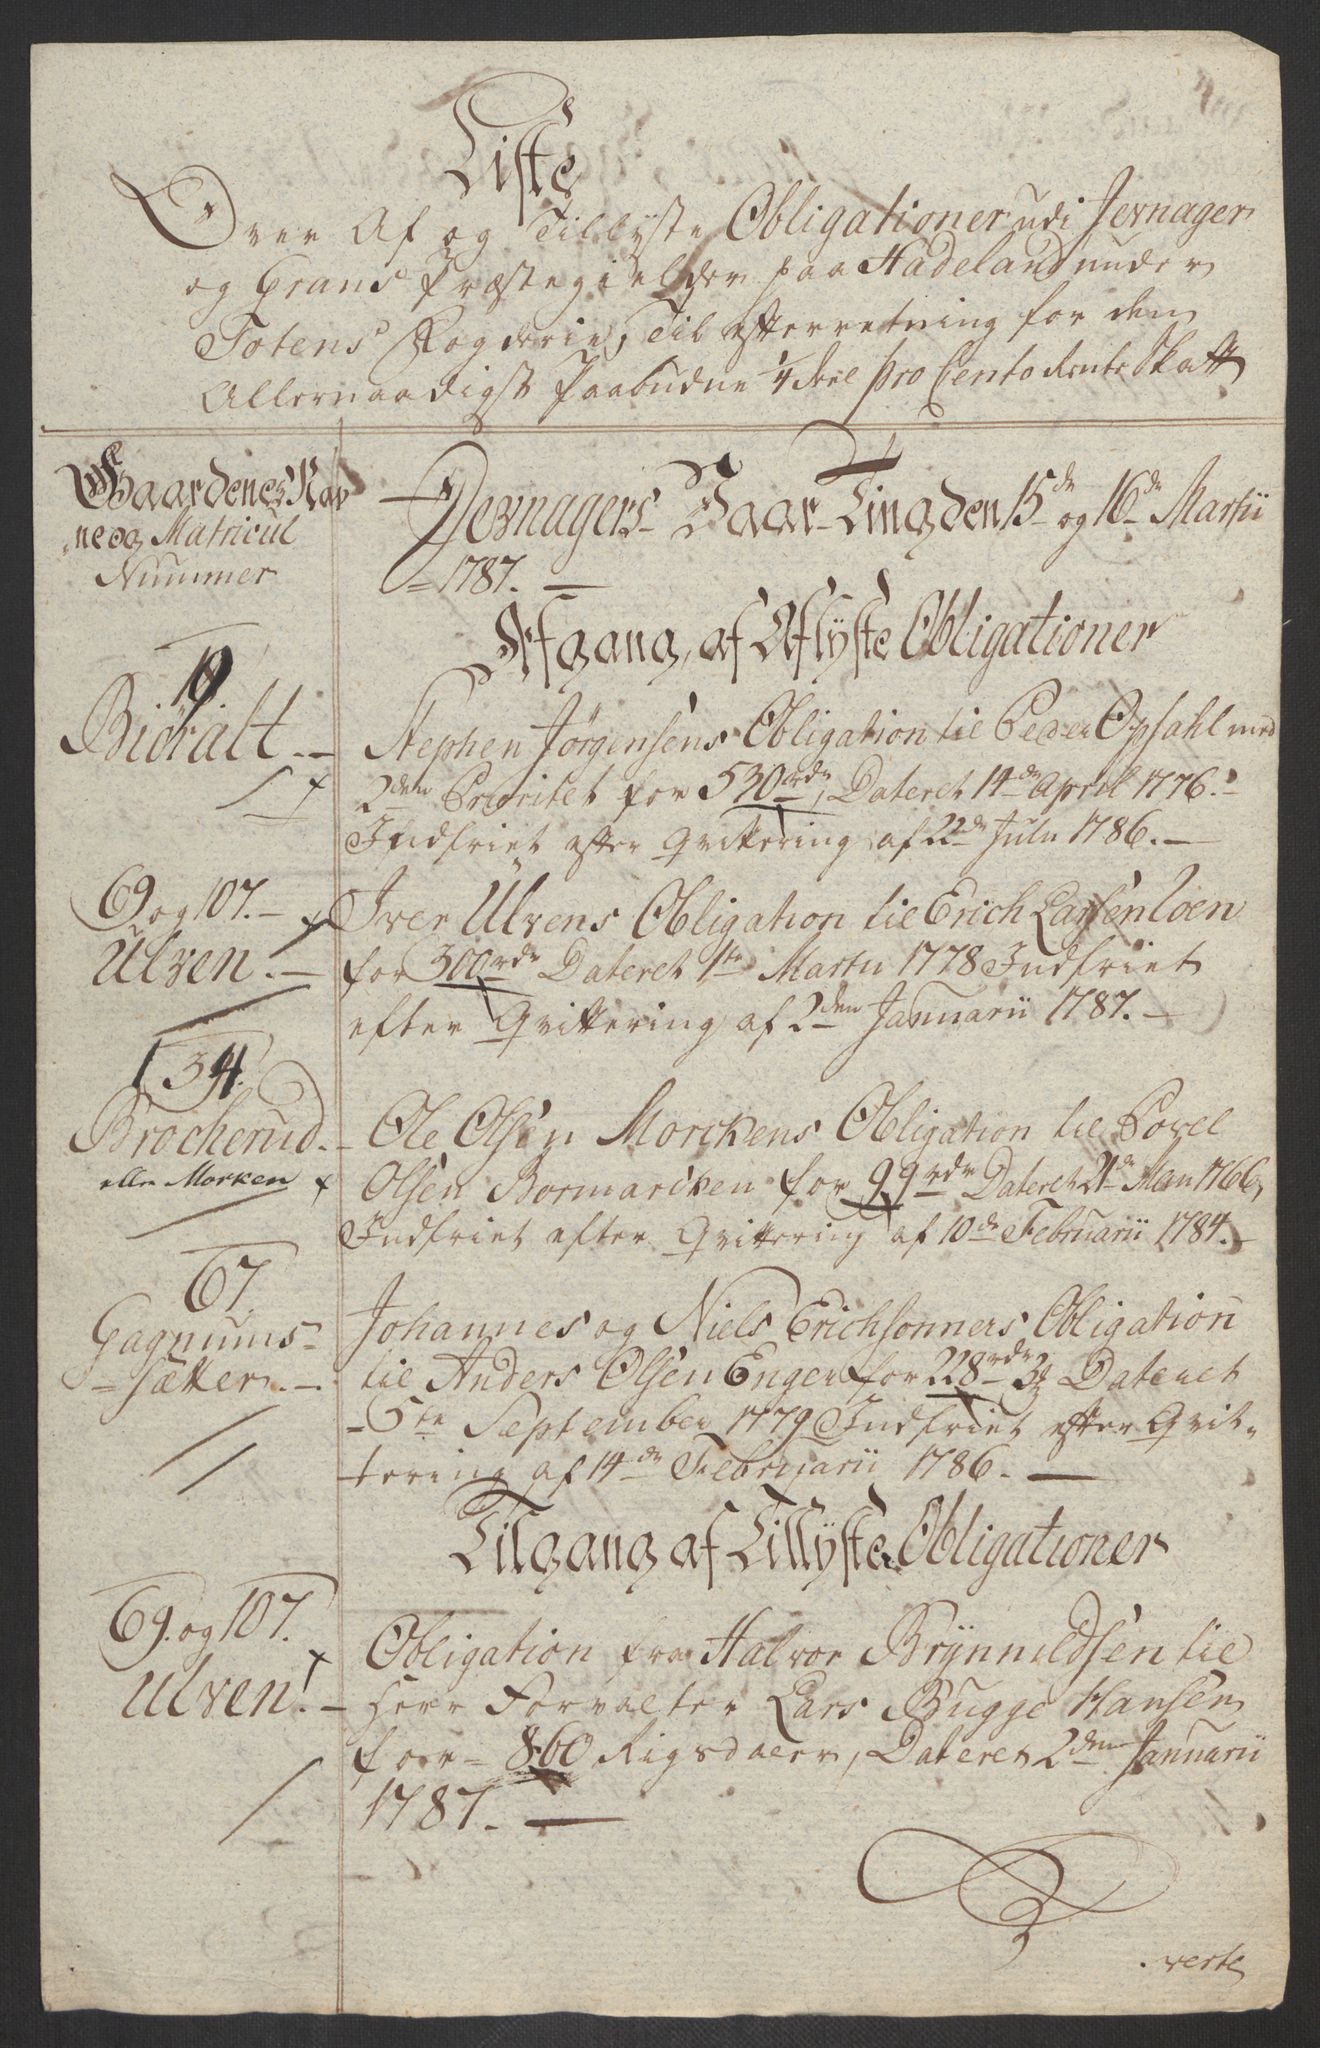 Liste
Over Af og Tillyste Obligationer udi Jevnager
og Grans Præstegielder paa Hadeland under
Totens Fogderie, Til efterretning for den
Allernaadigst Paabudne 1/4 deel pro Cento Rente Skatt
Gaardenes Nav
ne og Matricul
Nummer
Jevnagers Vaar-Ting den 15de og 16de Martii
1787.
Afgang, af Aflyste Obligationer
19
Biöralt.
Stephen Jörgensens Obligation til Peder Opsahl med
2den Prioritet for 530 rdr, Dateret 14de April 1776.
Indfriet efter Qvittering af 22de Julii 1786.
69 og 107.
Ulven.
Iver Ulvens Obligation til Erich Larsen Loen
for 300 rdr Dateret 1te Martii 1778 Indfriet
efter Qvittering af 2den Januarii 1787.
34.
Brocherud.
eller Morken
Ole Olsen Morckens Obligation til Povel
Olsen Bormarcken for 99 rdr Dateret 21de Maii 1766,
Indfriet efter Qvittering af 10de Februarii 1784.
67
Gagnums
sætter.
Johannes og Niels Erichsönners Obligation
til Anders Olsen Enger for 228 rdr Dateret
5te September 1779 Indfriet efter Qvit
tering af 14de Februarii 1786.
Tilgang af Tillyste Obligationer
69. og 107.
Ulven.
Obligation fra Halvor Brynnildsen til
Herr Forvalter Lars Bugge Hansen
for 860 Rigsdaler, Dateret 2den Januarii
1787.
verte